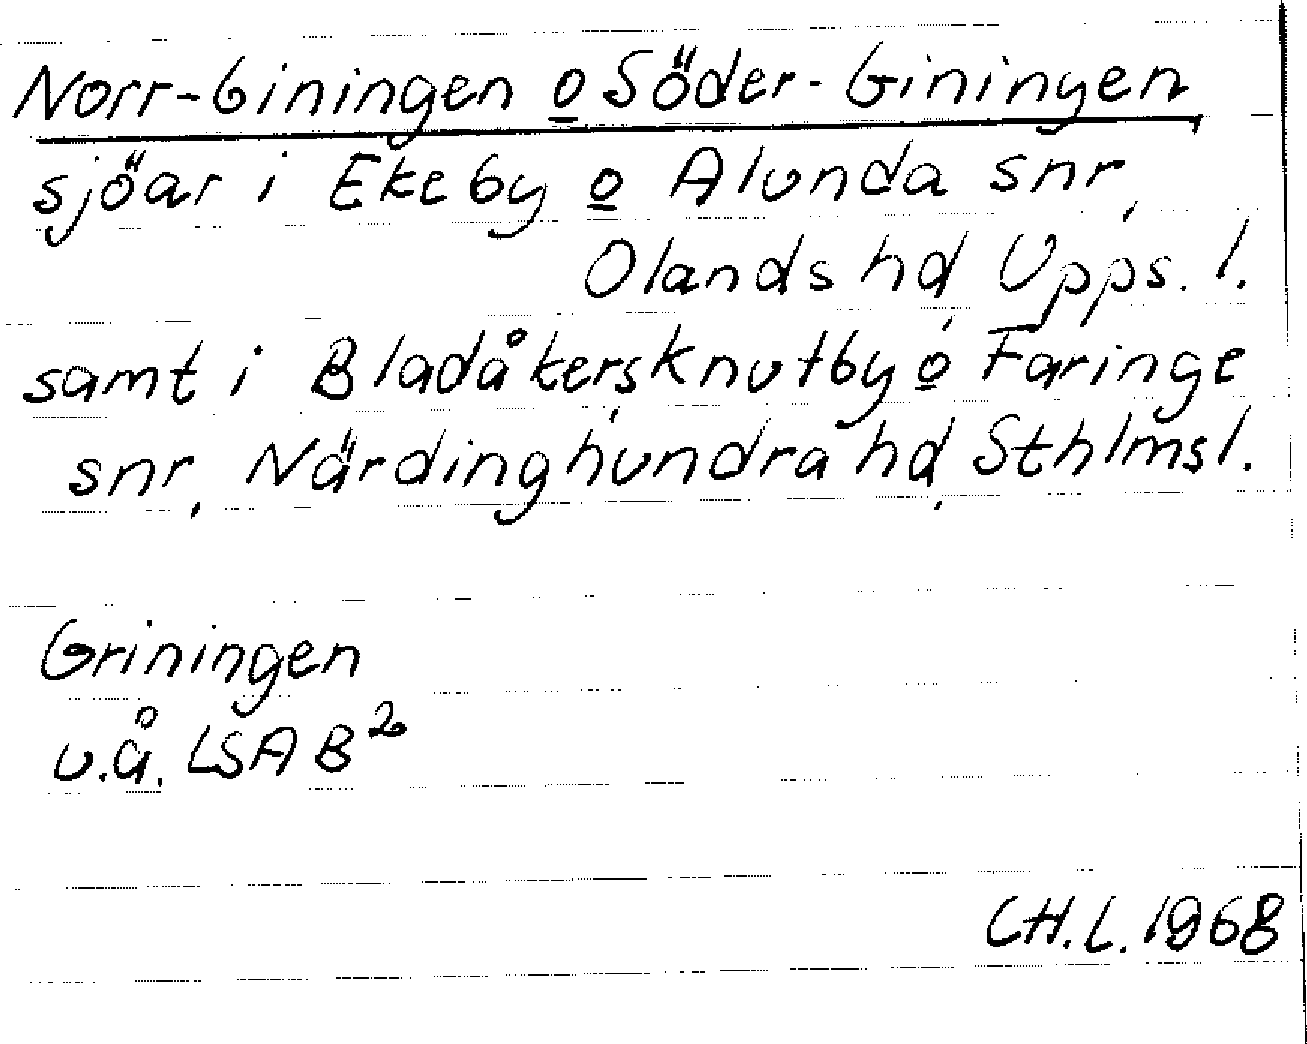 Norr-Giningen o Söder-Giningen
sjöar i Ekeby o Alunda snr,
Olands hd, Upps. l.
samt i Bladåkers, Knutby o Faringe
snr, Närdinghundra hd, Sthlms l.
Griningen
u.å. LSA B2
CH.L. 1968